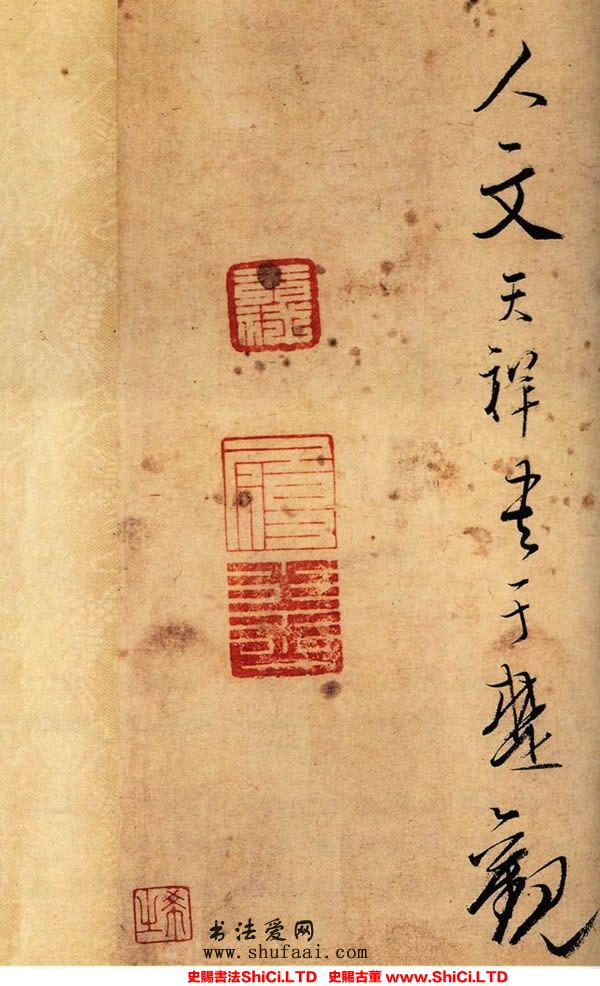 人文天祥书于楚观
希之
书法爱网
www.shufaai.com
史賜書法ShiCi.LTD 史賜古董 www.ShiCi.LTD